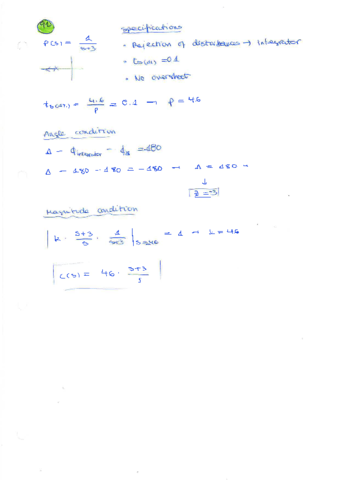 90
specifications
P(s) = 1/(s+3)
• Rejection of disturbances → Integrator
• ts(98%) = 0.1
• No overshoot
ts(98%) = 4.6/P = 0.1 → P = 46
Angle condition
Δ - ϕintegrator - ϕ = 180
Δ - 180 - 180 = -180 → Δ = 180 →
↓
z = -3
Magnitude condition
| K · (s+3)/s · 1/(s+3) | s=-46 = 1 → K = 46
C(s) = 46 · (s+3)/s